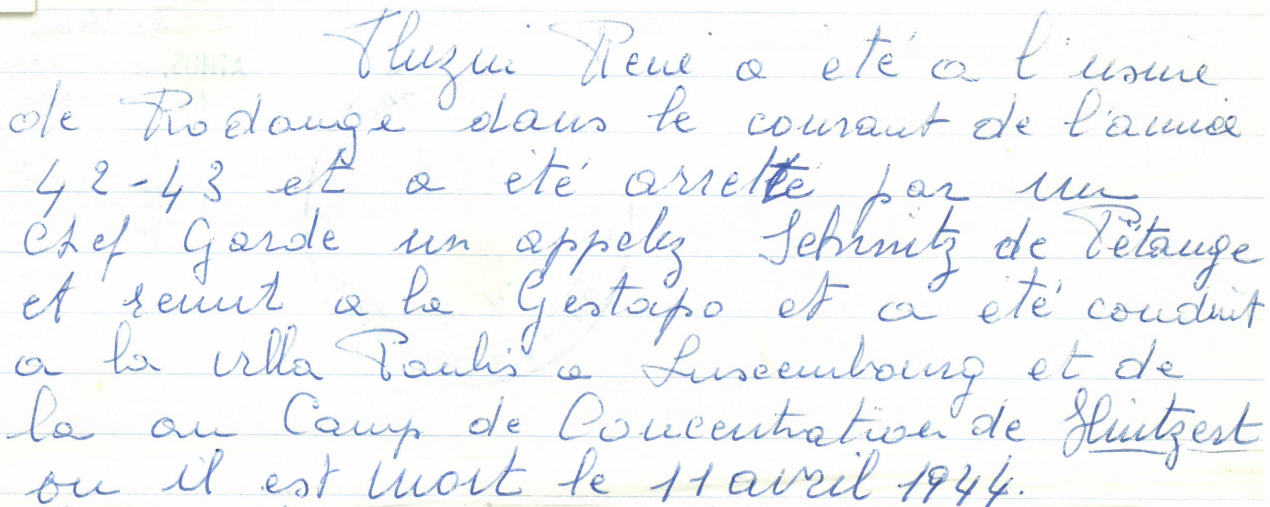 Thuzui René a été a l'usine
de Rodange dans le courant de l'année
42-43 et a été arretté par un
chef Garde un appelez Schmitz de Pétange
et remit a la Gestapo et a été conduit
a la villa Paulis a Luxembourg et de
la au Camp de Concentration de Hintzert
ou il est mort le 11 avril 1944.